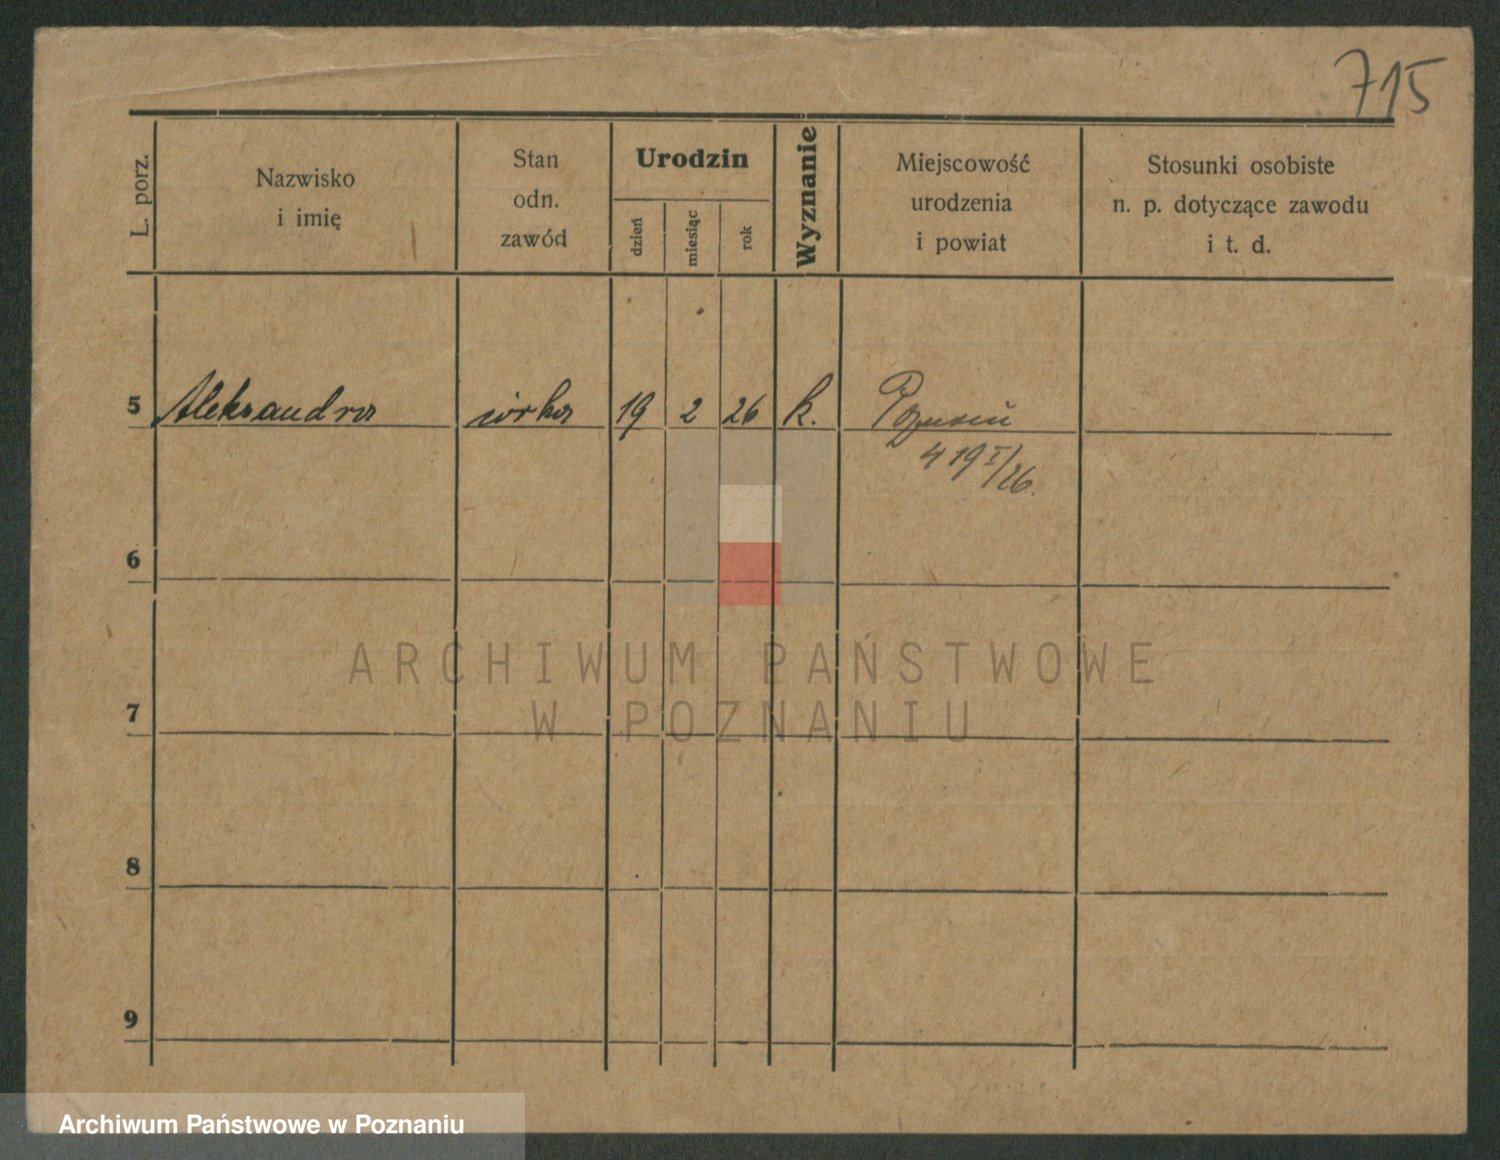 715
L. porz.
Nazwisko
i imię
Stan
odn.
zawód
Urodzin
dzień
miesiąc
rok
Wyznanie
Miejscowość
urodzenia
i powiat
Stosunki osobiste
n. p. dotyczące zawodu
i t. d.
5 Aleksandra córka 19 2 26 k. Poznań
19 I/26.
6
7
8
9
ARCHIWUM PAŃSTWOWE
W POZNANIU
Archiwum Państwowe w Poznaniu